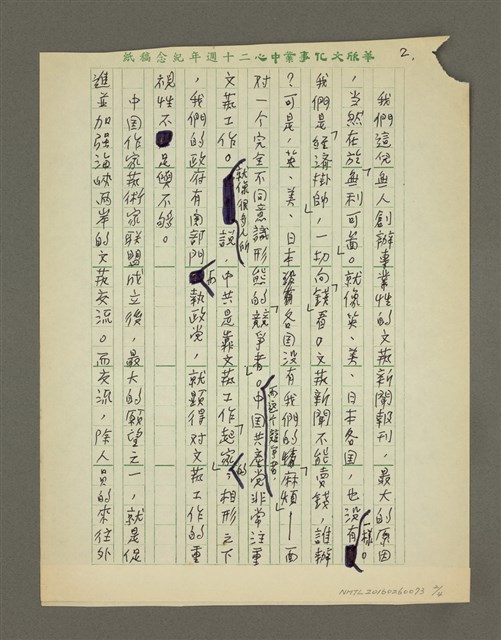 華欣文化事業中心二十週年紀念稿紙
2.
我們這兒無人創辦專業性的文藝新聞報刊，最大的原因
，當然在於「無利可圖」。就像英、美、日本各国，也没有一樣。
我們是「經濟掛帥」，一切向「錢」看。文藝新聞不能賣錢，誰辦
？可是，英、美、日本各国没有我們的「麻煩」——面
对一个完全不同意識形態的「競爭者」。而這个競爭者，中国共産党非常注重
文藝工作。就像很多人所說，中共是靠文藝工作「起家」的，相形之下
，我們的政府有関部門与執政党，就顯得对文藝工作的重
視性不是與不够。
中国作家藝術家联盟成立後，最大的願望之一，就是促
進並加强海峽兩岸的文藝交流。而交流，除人員的來往外
NMTL20160260073 2/4